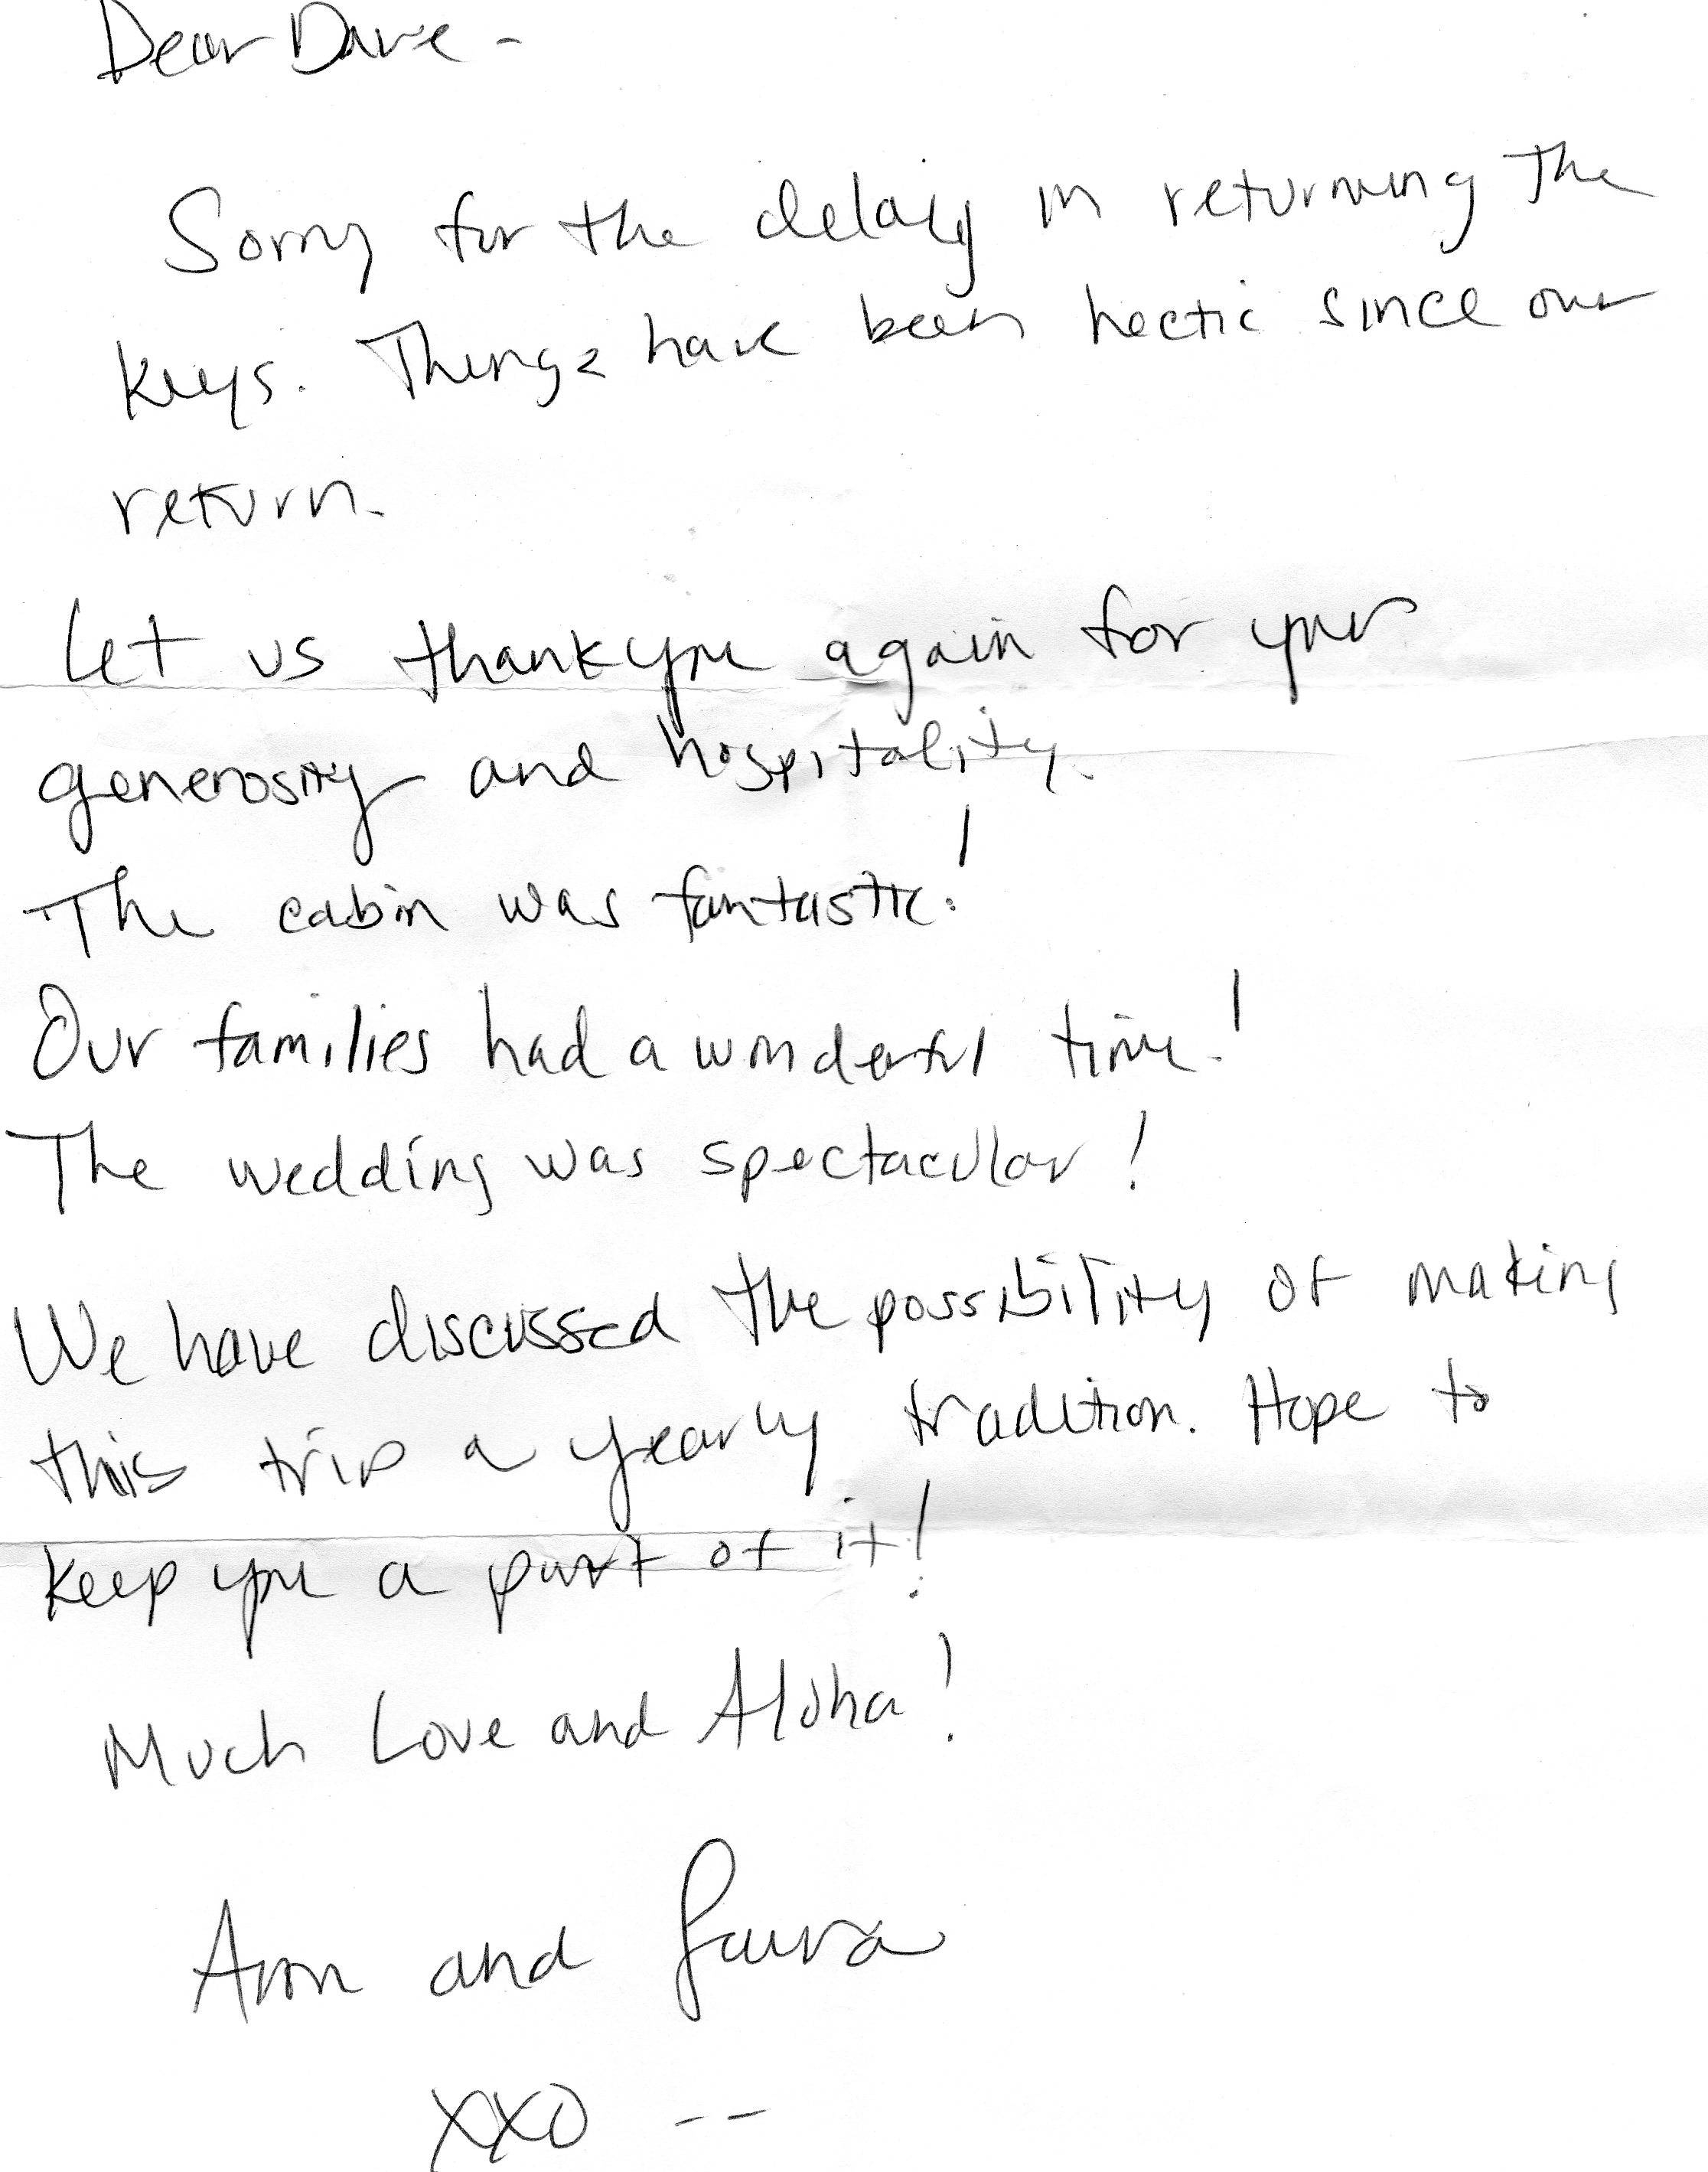 Dear Dave -
Sorry for the delay in returning the
keys. Things have been hectic since our
return.
Let us thank you again for your
generosity and hospitality.
The cabin was fantastic!
Our families had a wonderful time!
The wedding was spectacular!
We have discussed the possibility of making
this trip a yearly tradition. Hope to
keep you a part of it!
Much Love and Aloha!
Aron and Laura
XXO --